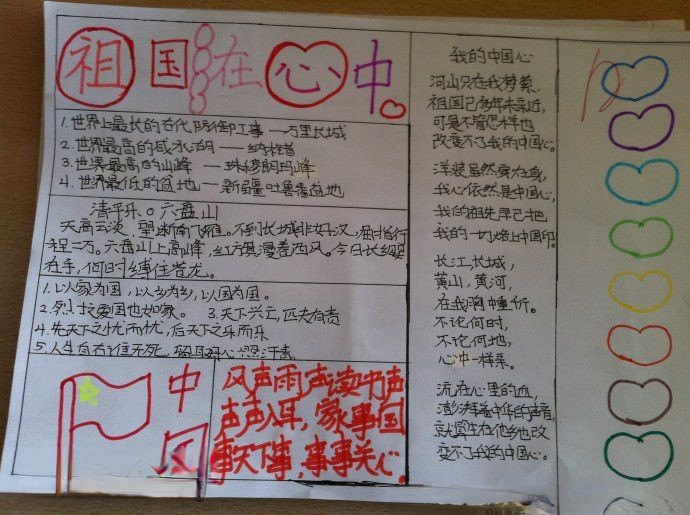 祖国在心中
1. 世界上最长的古代防御工事 — 万里长城
2. 世界最高的咸水湖 — 纳木错
3. 世界最高的山峰 — 珠穆朗玛峰
4. 世界最低的盆地 — 新疆吐鲁番盆地
清平乐。六盘山
天高云淡，望断南飞雁。不到长城非好汉，屈指行
程二万。六盘山上高峰，红旗漫卷西风。今日长缨
在手，何时缚住苍龙。
1. 以家为国，以乡为乡，以国为国。
2. 烈士爱国也如家。 3. 天下兴亡，匹夫有责
4. 先天下之忧而忧，后天下之乐而乐
5. 人生自古谁无死，留取丹心照汗青
中
国
风声雨声读书声
声声入耳，家事国
事天下事，事事关心。
我的中国心
河山只在我梦萦，
祖国已多年未亲近，
可是不管怎样也
改变不了我的中国心。
洋装虽然穿在身，
我心依然是中国心，
我的祖先早已把
我的一切烙上中国印。
长江，长城，
黄山，黄河，
在我胸中重千斤。
不论何时，
不论何地，
心中一样亲。
流在心里的血，
澎湃着中华的声音，
就算生在他乡也改
变不了我的中国心。